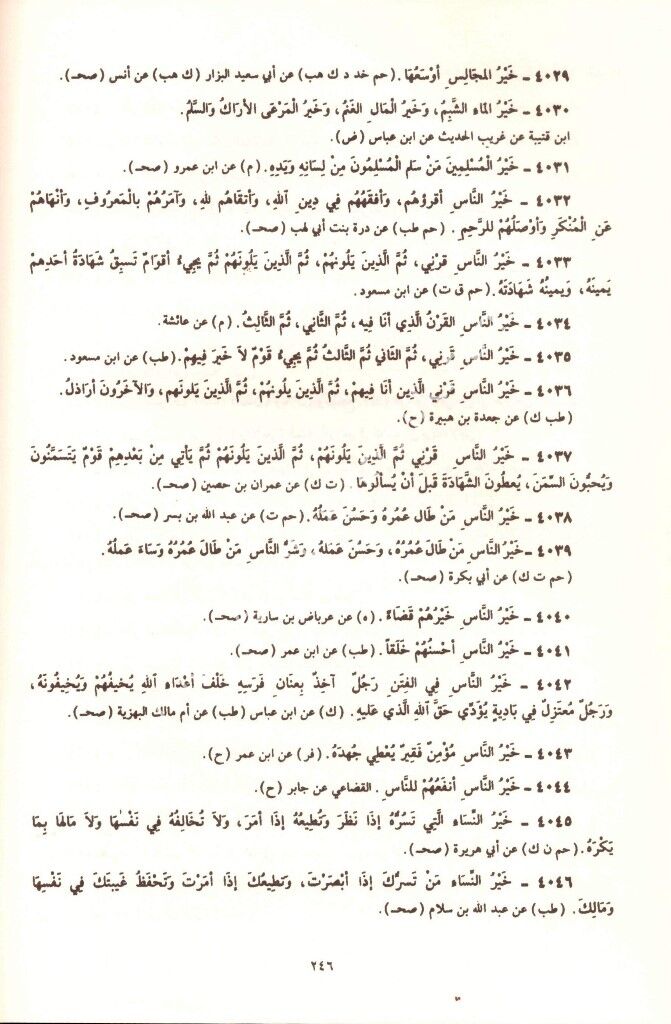 ٤٠٢٩ - خَيْرُ المجَالِسِ أوْسَعُهَا. (حم خد د ك هب) عن أبي سعيد البزار (ك هب) عن أنس (صحـ).
٤٠٣٠ - خَيْرُ الماءِ الشَّبِمُ، وَخَيْرُ المَالِ الغَنَمُ، وَخَيْرُ المَرْعَى الأرَاكُ وَالسَّلَمُ.
ابن قتيبة عن غريب الحديث عن ابن عباس (ض).
٤٠٣١ - خَيْرُ الْمُسْلِمِينَ مَنْ سَلِمَ الْمُسْلِمُونَ مِنْ لِسَانِهِ وَيَدِهِ. (م) عن ابن عمرو (صحـ).
٤٠٣٢ - خَيْرُ النَّاسِ أقرؤُهم، وَأفقَهُهُم فِي دِينِ اللهِ، وَأتقَاهُم للهِ، وَآمَرُهُمْ بِالْمَعرُوفِ، وَأنْهَاهُمْ
عَنِ الْمُنْكَرِ وَأوْصَلُهُمْ للرَّحِمِ. (حم طب) عن درة بنت أبي لهب (صحـ).
٤٠٣٣ - خَيْرُ النَّاسِ قَرْنِي، ثُمَّ الَّذِينَ يَلُونَهُمْ، ثُمَّ الَّذِينَ يَلُونَهُمْ ثُمَّ يجِيءُ أقوَامٌ تَسبِقُ شَهَادَةُ أحَدِهِمْ
يَمِينَهُ، وَيَمِينُهُ شَهَادَتَهُ. (حم ق ت) عن ابن مسعود.
٤٠٣٤ - خَيْرُ النَّاسِ القَرْنُ الَّذِي أنَا فِيهِ، ثُمَّ الثَّانِي، ثُمَّ الثَّالِثُ. (م) عن عائشة.
٤٠٣٥ - خَيْرُ النَّاسِ قَرْنِي، ثُمَّ الثَّانِي ثُمَّ الثَّالِثُ ثُمَّ يَجِيءُ قَوْمٌ لَا خَيرَ فِيهِمْ. (طب) عن ابن مسعود.
٤٠٣٦ - خَيْرُ النَّاسِ قَرْنِي الَّذِينَ أنَا فِيهِمْ، ثُمَّ الَّذِينَ يَلُونَهُمْ، ثُمَّ الَّذِينَ يَلونَهم، وَالآخَرُونَ أرَاذلُ.
(طب ك) عن جعدة بن هبيرة (ح).
٤٠٣٧ - خَيْرُ النَّاسِ قَرْنِي ثُمَّ الَّذِينَ يَلُونَهُمْ، ثُمَّ الَّذِينَ يَلُونَهُمْ ثُمَّ يَأتِي مِنْ بَعْدِهِمْ قَوْمٌ يَتَسَمَّنُونَ
وَيُحبُّونَ السِّمَنَ، يُعطُونَ الشَّهَادَةَ قَبلَ أنْ يُسألُوهَا. (ت ك) عن عمران بن حصين (صحـ).
٤٠٣٨ - خَيْرُ النَّاسِ مَنْ طَالَ عُمُرُهُ وَحَسُنَ عَمَلُهُ. (حم ت) عن عبد الله بن بسر (صحـ).
٤٠٣٩ - خَيْرُ النَّاسِ مَنْ طَالَ عُمُرُهُ، وَحَسُنَ عَمَلهُ، وَشَرُّ النَّاسِ مَنْ طَالَ عُمُرُهُ وَسَاءَ عَمَلُهُ.
(حم ت ك) عن أبي بكرة (صحـ).
٤٠٤٠ - خَيْرُ النَّاسِ خَيْرُهُمْ قَضَاءً. (ه) عن عرباض بن سارية (صحـ).
٤٠٤١ - خَيْرُ النَّاسِ أحْسَنُهُمْ خُلُقاً. (طب) عن ابن عمر (صحـ).
٤٠٤٢ - خَيْرُ النَّاسِ فِي الفِتَنِ رَجُلٌ آخِذٌ بِعِنَانِ فَرَسِهِ خَلْفَ أعْدَاءِ اللهِ يُخيفُهُمْ وَيُخِيفُونَهُ،
وَرَجُلٌ مُعتَزِلٌ فِي بَادِيةٍ يُؤَدِّي حَقَّ اللهِ الَّذي عَلَيهِ. (ك) عن ابن عباس (طب) عن أم مالك البهزية (صحـ).
٤٠٤٣ - خَيْرُ النَّاسِ مُؤْمِنٌ فَقِيرٌ يُعْطِي جُهدَهُ. (فر) عن ابن عمر (ح).
٤٠٤٤ - خَيْرُ النَّاسِ أنفَعُهُمْ للنَّاسِ. القضاعي عن جابر (ح).
٤٠٤٥ - خَيْرُ النِّسَاءِ الَّتِي تَسُرُّهُ إذَا نَظَرَ وَتُطِيعُهُ إذَا أمَرَ، وَلَا تُخَالِفُهُ فِي نَفْسِهَا وَلَا مَالِهَا بِمَا
يَكْرَهُ. (حم ن ك) عن أبي هريرة (صحـ).
٤٠٤٦ - خَيْرُ النِّسَاءِ مَنْ تَسرُّكَ إذَا أبْصَرْتَ، وَتطِيعُكَ إذَا أمَرْتَ وَتَحْفَظُ غَيبَتَكَ فِي نَفْسِهَا
وَمَالِكَ. (طب) عن عبد الله بن سلام (صحـ).
٢٤٦